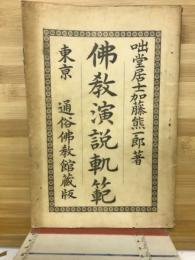 咄堂居士加藤熊一郎著
佛教演説軌範
東京 通俗佛教館藏版